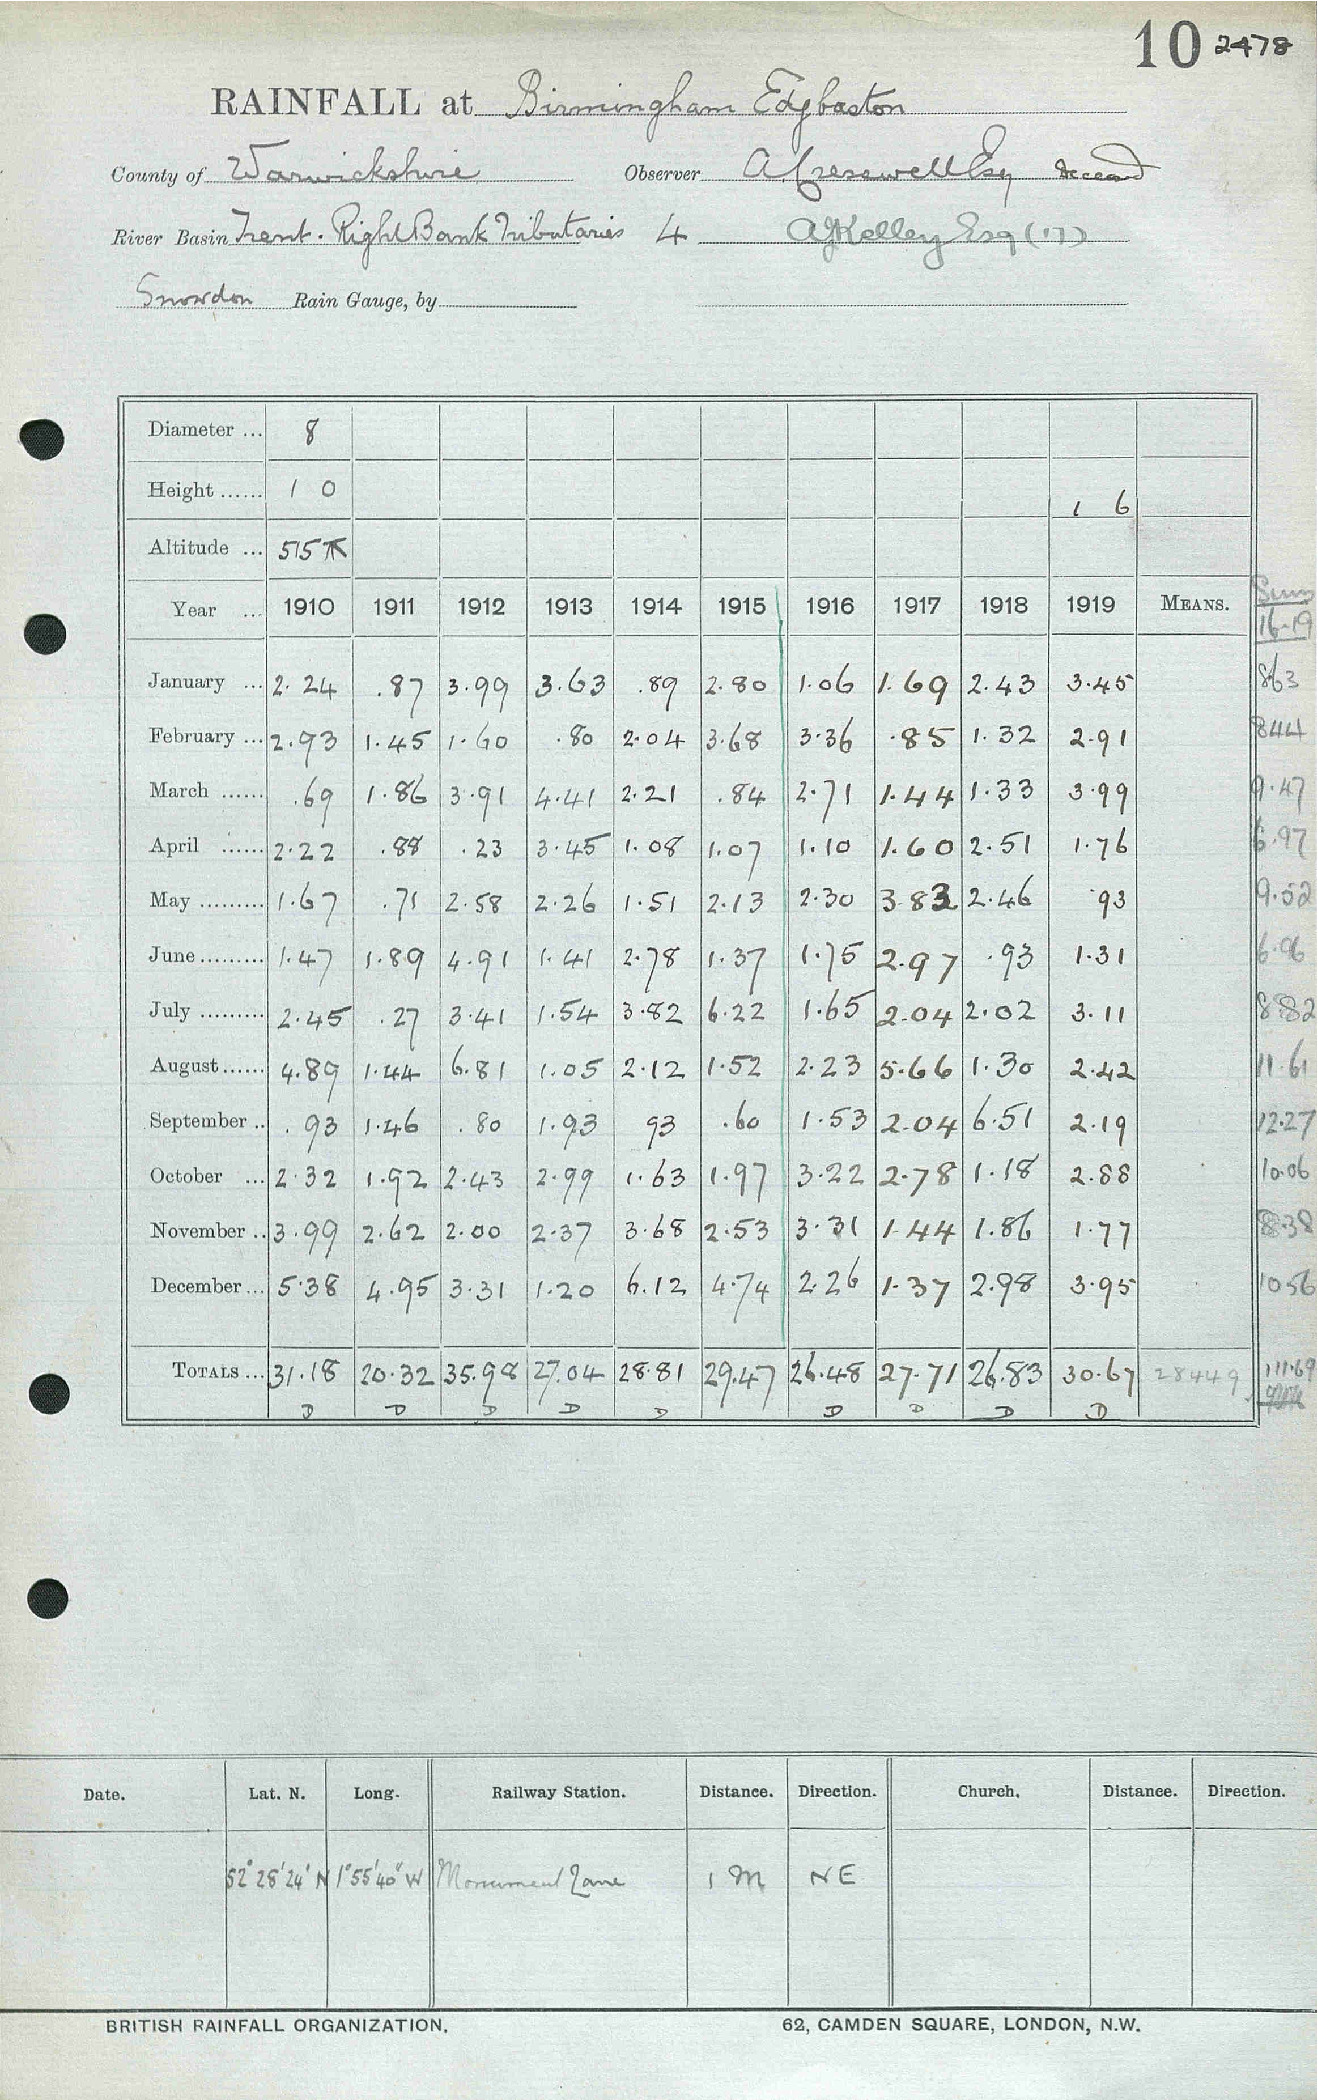 10 2478
RAINFALL at Birmingham Edgbaston
County of Warwickshire Observer A Cresswell Esq deceased
River Basin Trent. Right Bank Tributaries 4 A J Kelley Esq (17)
Snowdon Rain Gauge, by
Diameter ... 8
Height ...... 1 0 1 6
Altitude ... 515
Year ... 1910 1911 1912 1913 1914 1915 1916 1917 1918 1919 MEANS. Sums 16-19
January ... 2.24 .87 3.99 3.63 .89 2.80 1.06 1.69 2.43 3.45 863
February ... 2.93 1.45 1.60 .80 2.04 3.68 3.36 .85 1.32 2.91 844
March ...... .69 1.86 3.91 4.41 2.21 .84 2.71 1.44 1.33 3.99 9.47
April ...... 2.22 .88 .23 3.45 1.08 1.07 1.10 1.60 2.51 1.76 6.97
May ......... 1.67 .71 2.58 2.26 1.51 2.13 2.30 3.83 2.46 .93 9.52
June ......... 1.47 1.89 4.91 1.41 2.78 1.37 1.75 2.97 .93 1.31 6.96
July ......... 2.45 .27 3.41 1.54 3.82 6.22 1.65 2.04 2.02 3.11 8.82
August ...... 4.89 1.44 6.81 1.05 2.12 1.52 2.23 5.66 1.30 2.42 11.61
September .. .93 1.46 .80 1.93 93 .60 1.53 2.04 6.51 2.19 12.27
October ... 2.32 1.92 2.43 2.99 1.63 1.97 3.22 2.78 1.18 2.88 10.06
November .. 3.99 2.62 2.00 2.37 3.68 2.53 3.31 1.44 1.86 1.77 8.38
December ... 5.38 4.95 3.31 1.20 6.12 4.74 2.26 1.37 2.98 3.95 1056
TOTALS ... 31.18 20.32 35.98 27.04 28.81 29.47 26.48 27.71 26.83 30.67 28449 111.69
D D D D D D D D D
Date. Lat. N. Long. Railway Station. Distance. Direction. Church. Distance. Direction.
52° 28' 24' N 1° 55' 40" W Monument Lane 1 M NE
BRITISH RAINFALL ORGANIZATION. 62, CAMDEN SQUARE, LONDON, N.W.